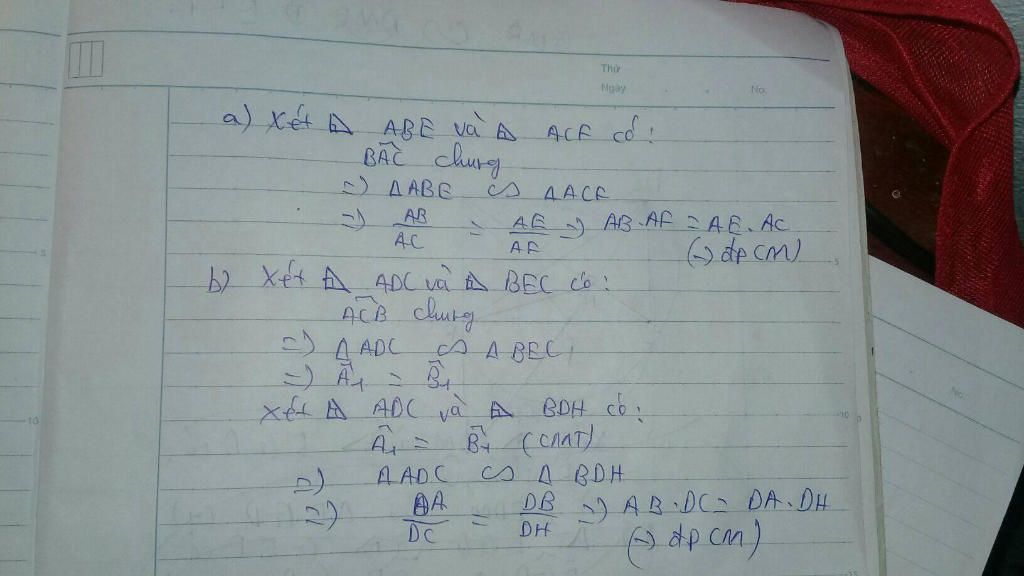 Thứ
Ngày
No.
a) Xét ⊿ ABE và ⊿ ACF có:
BÂC chung
=) ΔABE ∽ ΔACF
=) AB/AC = AE/AF =) AB.AF = AE.AC
(-) đpcm)
b) Xét ⊿ ADC và ⊿ BEC có:
AĈB chung
=) Δ ADC ∽ Δ BEC
=) Â1 = B̂1
Xét ⊿ ADC và ⊿ BDH có:
Â1 = B̂1 (CMT)
=) ΔADC ∽ Δ BDH
=) DA/DC = DB/DH =) AB.DC = DA.DH
(-) đpcm)
No.